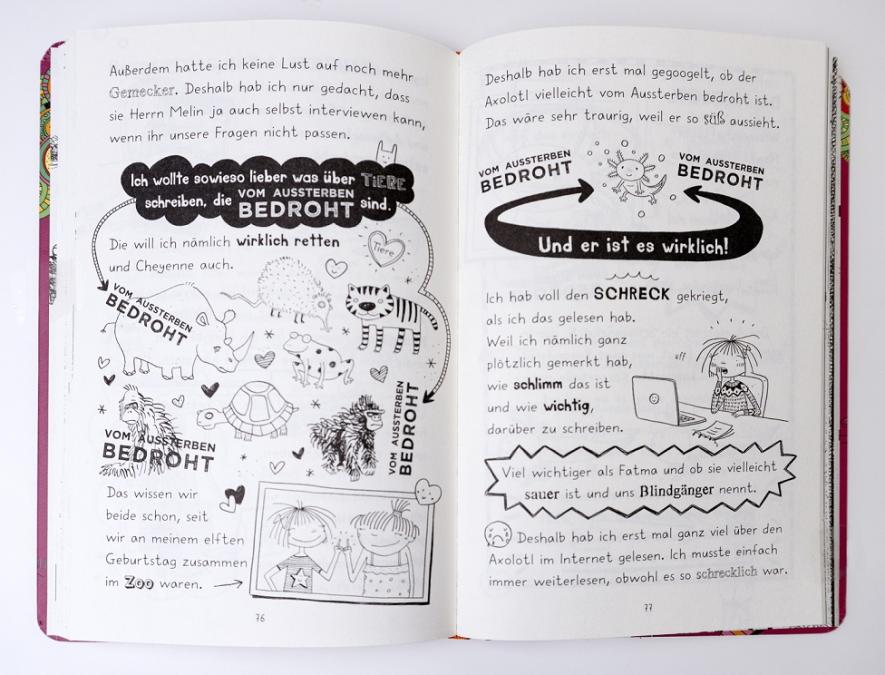 Außerdem hatte ich keine Lust auf noch mehr
Gemecker. Deshalb hab ich nur gedacht, dass
sie Herrn Melin ja auch selbst interviewen kann,
wenn ihr unsere Fragen nicht passen.
Ich wollte sowieso lieber was über TIERE
schreiben, die VOM AUSSTERBEN BEDROHT sind.
Die will ich nämlich wirklich retten
und Cheyenne auch.
Tiere
VOM AUSSTERBEN
BEDROHT
VOM AUSSTERBEN
BEDROHT
VOM AUSSTERBEN
BEDROHT
Das wissen wir
beide schon, seit
wir an meinem elften
Geburtstag zusammen
im Zoo waren.
76
Deshalb hab ich erst mal gegoogelt, ob der
Axolotl vielleicht vom Aussterben bedroht ist.
Das wäre sehr traurig, weil er so süß aussieht.
VOM AUSSTERBEN
BEDROHT
VOM AUSSTERBEN
BEDROHT
Und er ist es wirklich!
Ich hab voll den SCHRECK gekriegt,
als ich das gelesen hab.
Weil ich nämlich ganz
plötzlich gemerkt hab,
wie schlimm das ist
und wie wichtig,
darüber zu schreiben.
Viel wichtiger als Fatma und ob sie vielleicht
sauer ist und uns Blindgänger nennt.
Deshalb hab ich erst mal ganz viel über den
Axolotl im Internet gelesen. Ich musste einfach
immer weiterlesen, obwohl es so schrecklich war.
77